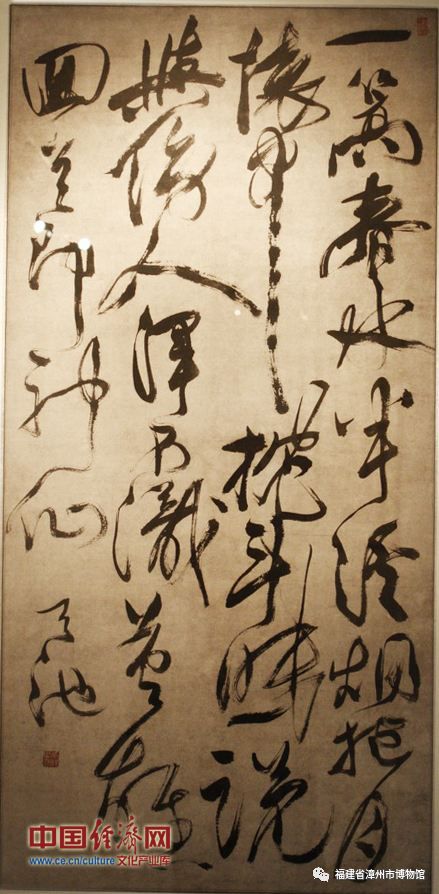 一篙春水半溪烟抱月
懷中枕斗眠説
與傍人渾不識英雄
囬首即神仙
天池
中国经济网
www.ce.cn/culture 文化产业库
福建省漳州市博物馆